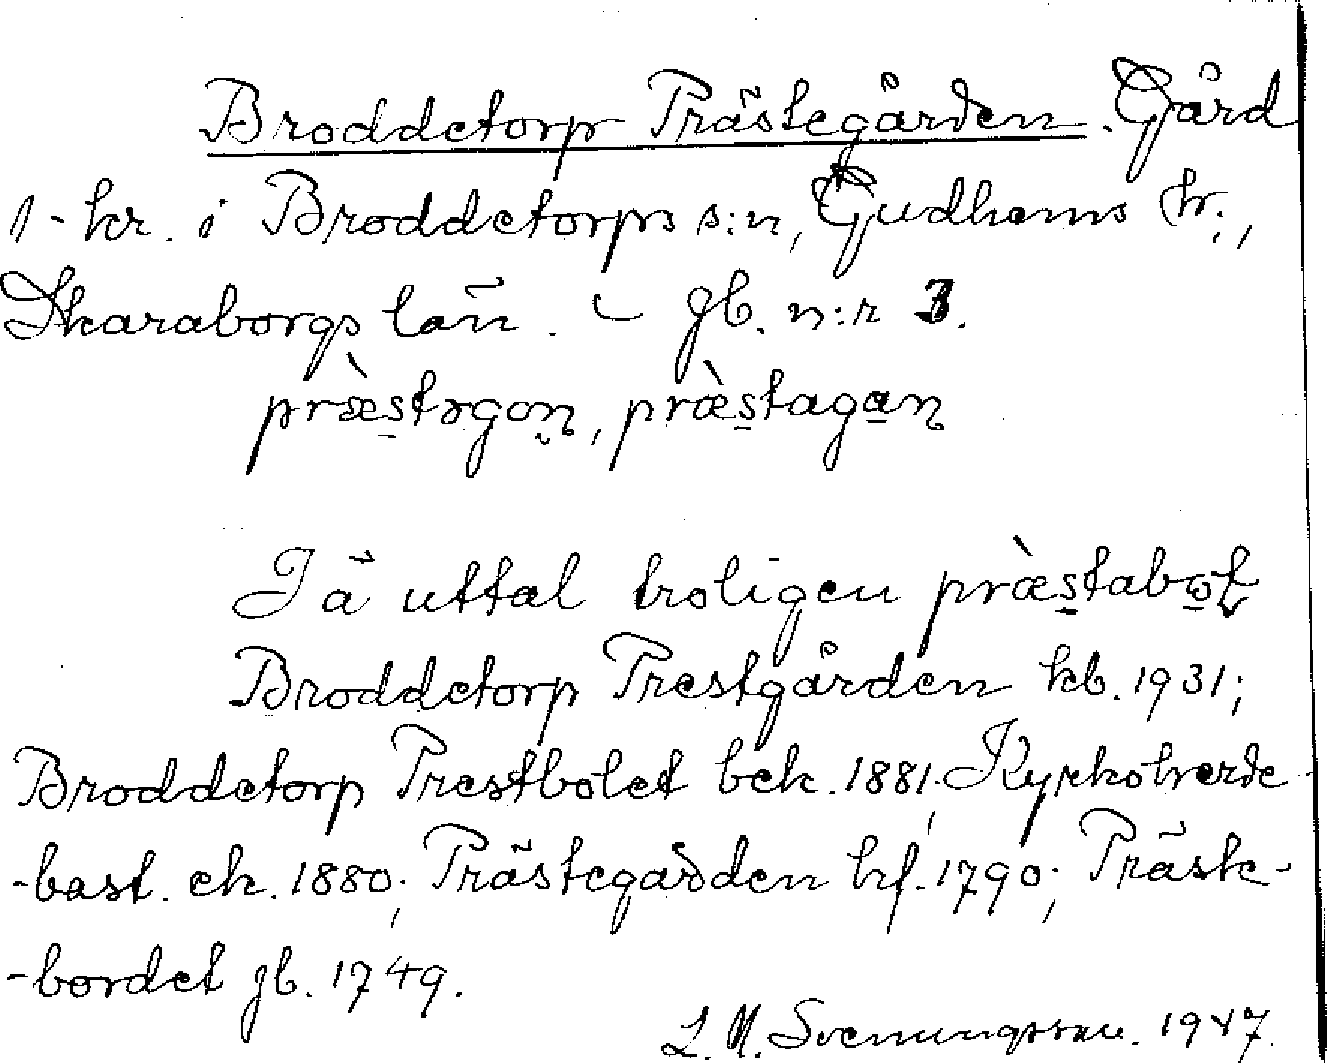 Broddetorp Prästegården. Gård
1-kr. i Broddetorps s:n, Gudhems hr.,
Skaraborgs län. – gb. n:r 3.
præ̀stəgon, præ̀stagan
Iä uttal troligen præ̀stabot
Broddetorp Prestgården kb. 1931;
Broddetorp Prestbolet bek. 1881; Kyrkohrerde
-bost. ek. 1880; Prästegården hf. 1790; Präste-
-bordet gb. 1749.
L. M. Svenungsson. 1947.